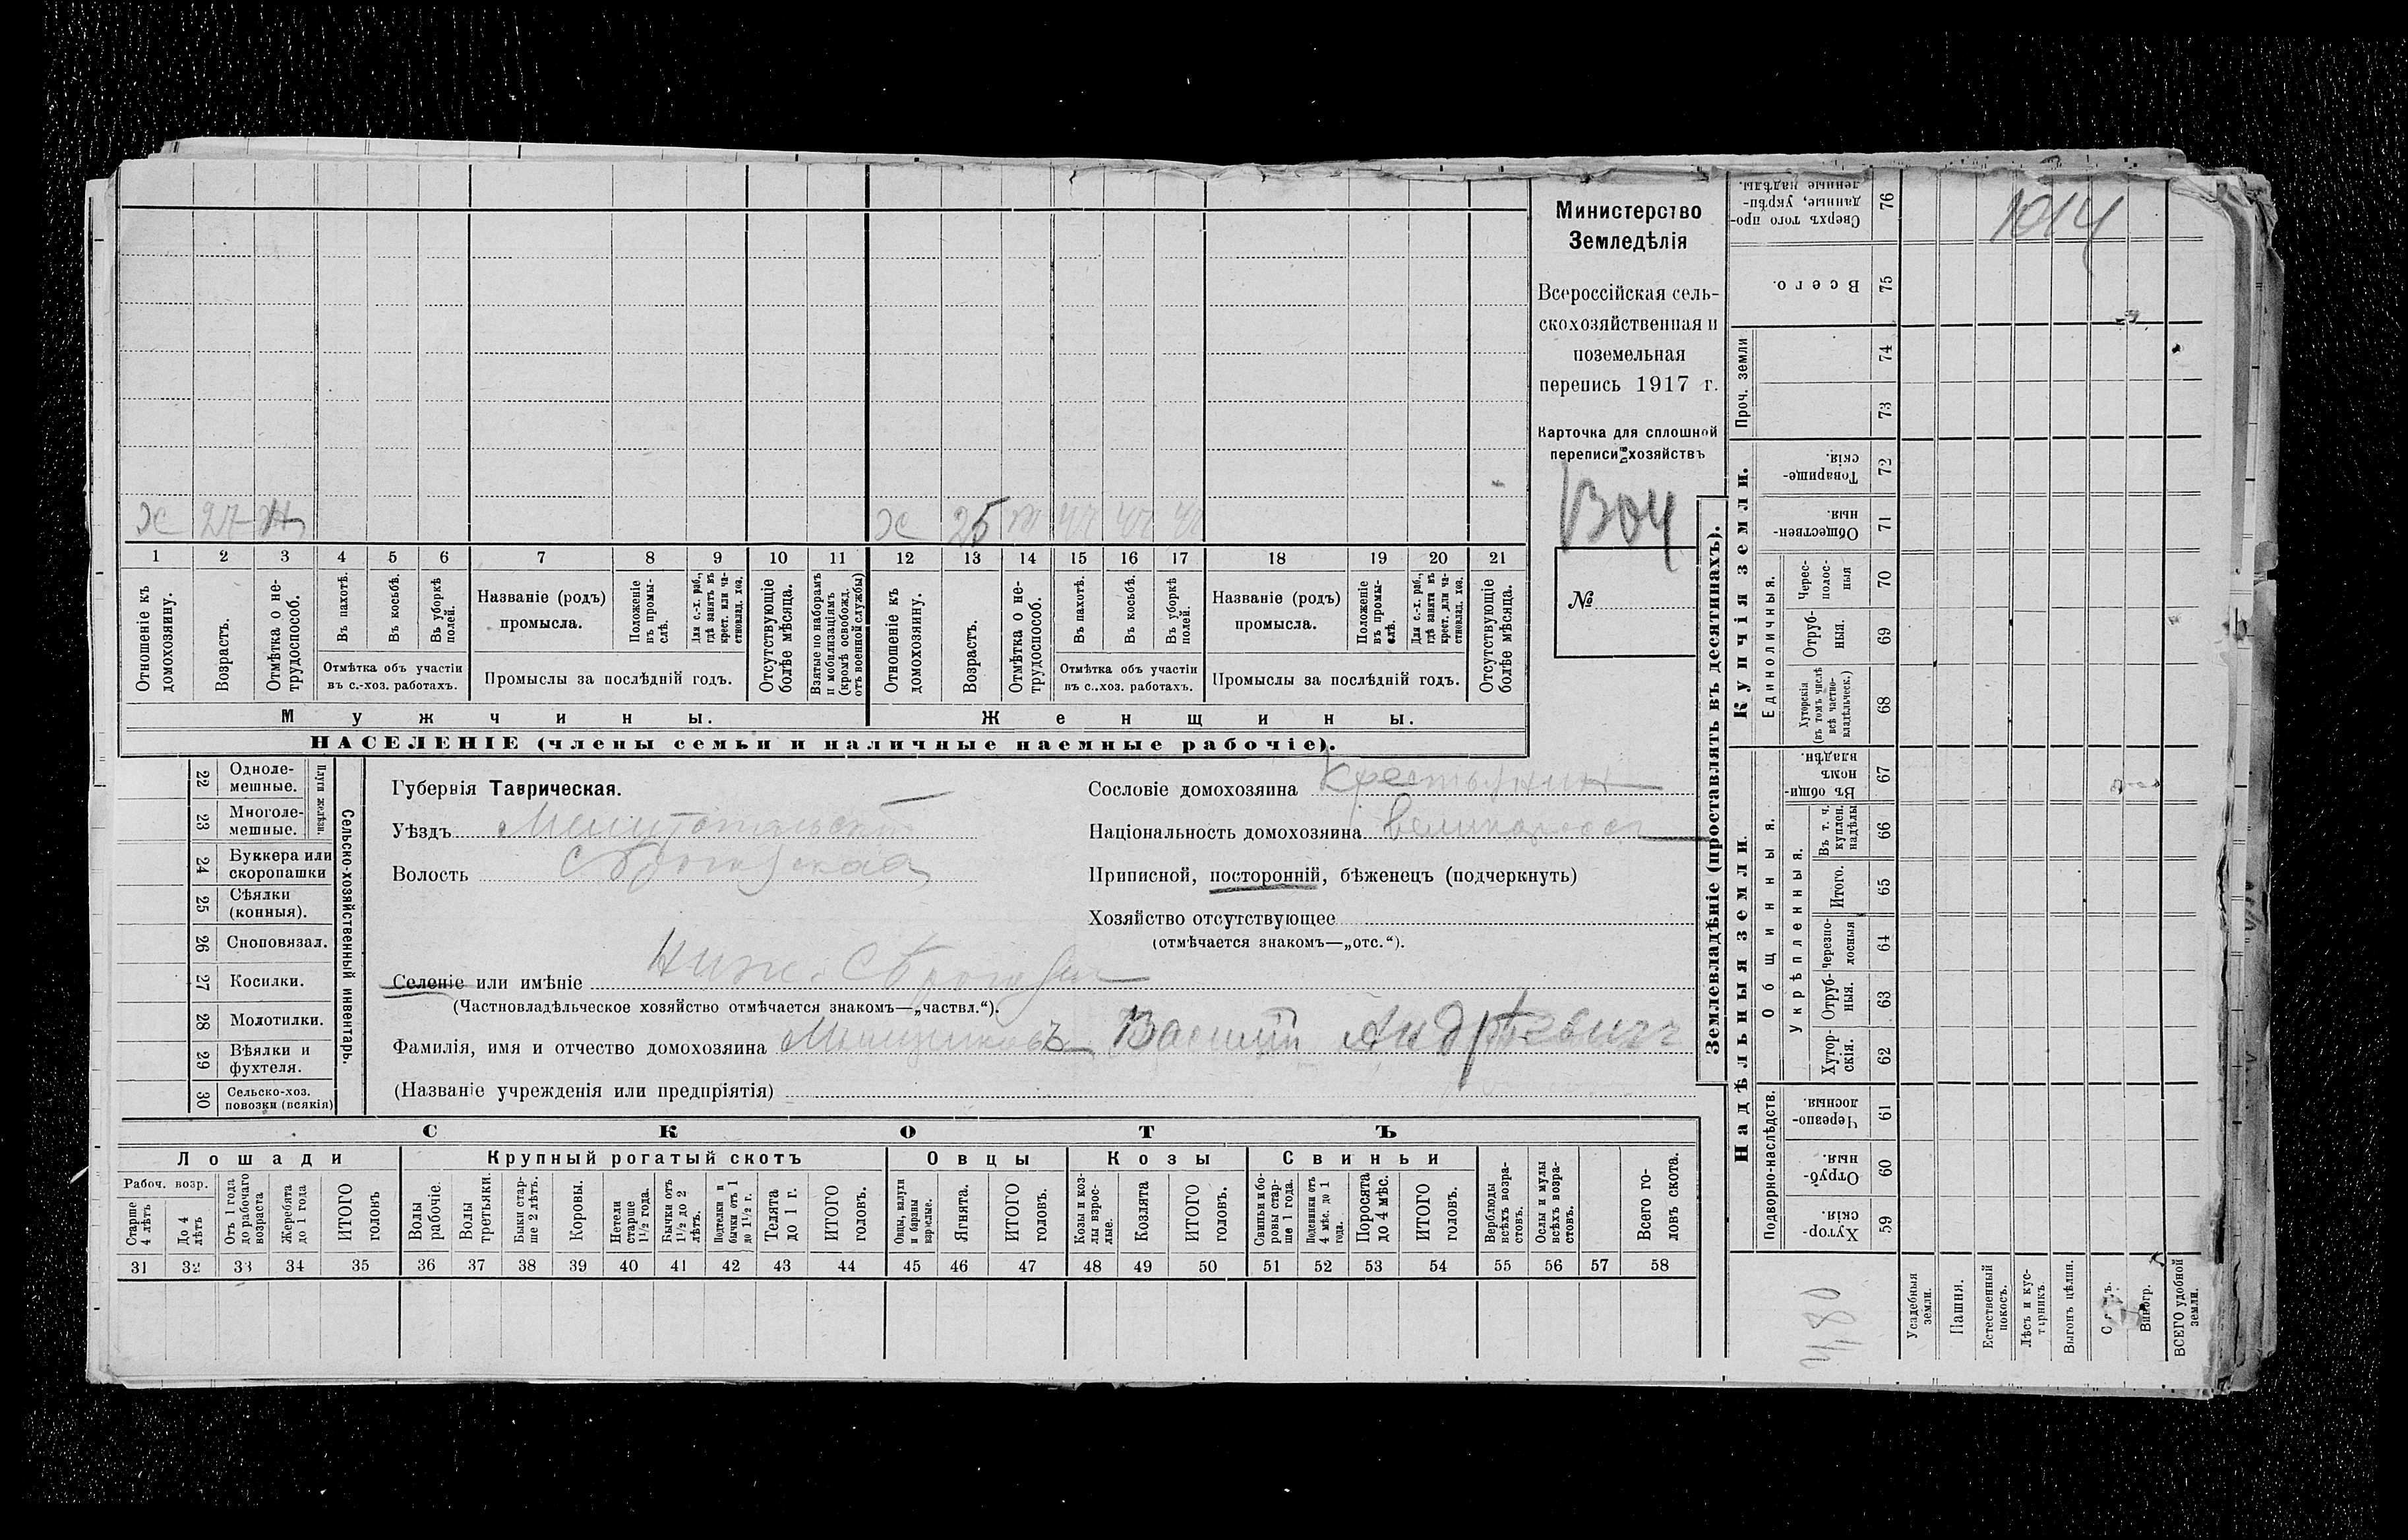 Министерство
Земледѣлія
Всероссійская сель-
скохозяйственная и
поземельная
перепись 1917 г.
Карточка для сплошной
переписи хозяйствъ
№
х 27 н
х 25
1 2 3 4 5 6 7 8 9 10 11 12 13 14 15 16 17 18 19 20 21
Отношеніе къ домохозяину.
Возрастъ.
Отмѣтка о не-трудоспособ.
Въ пахотѣ.
Въ косьбѣ.
Въ уборкѣ полей.
Отмѣтка объ участіи
въ с.-хоз. работахъ.
Названіе (родъ)
промысла.
Положеніе въ промы-слѣ.
Для с.-х. раб., гдѣ занятъ въ крест. или ча-стновлад. хоз.
Промыслы за послѣдній годъ.
Отсутствующіе болѣе мѣсяца.
Взятые по наборамъ и мобилизаціямъ (кромѣ освобожд. отъ военной службы)
Отношеніе къ домохозяину.
Возрастъ.
Отмѣтка о не-трудоспособ.
Въ пахотѣ.
Въ косьбѣ.
Въ уборкѣ полей.
Отмѣтка объ участіи
въ с.-хоз. работахъ.
Названіе (родъ)
промысла.
Положеніе въ промы-слѣ.
Для с.-х. раб., гдѣ занята въ крест. или ча-стновлад. хоз.
Промыслы за послѣдній годъ.
Отсутствующіе болѣе мѣсяца.
Мужчины.
Женщины.
НАСЕЛЕНІЕ (члены семьи и наличные наемные рабочіе).
Сельско-хозяйственный инвентарь.
Плуги желѣзн.
22 Одноле-мешные.
23 Многоле-мешные.
24 Буккера или скоропашки
25 Сѣялки (конныя).
26 Сноповязал.
27 Косилки.
28 Молотилки.
29 Вѣялки и фухтеля.
30 Сельско-хоз. повозки (всякія)
Губернія Таврическая.
Уѣздъ Мелитопольскій
Волость Сѣрогозская
Селеніе или имѣніе Ниж. Сѣрогозы
(Частновладѣльческое хозяйство отмѣчается знакомъ—„частвл.“).
Фамилія, имя и отчество домохозяина Василій Андрѣевичъ
(Названіе учрежденія или предпріятія)
Сословіе домохозяина Крестьянин
Національность домохозяина великоросс
Приписной, посторонній, бѣженецъ (подчеркнуть)
Хозяйство отсутствующее
(отмѣчается знакомъ—„отс.“).
СКОТЪ
Лошади
Крупный рогатый скотъ
Овцы
Козы
Свиньи
Рабоч. возр.
Старше 4 лѣтъ
До 4 лѣтъ
Отъ 1 года до рабочаго возраста
Жеребята до 1 года
ИТОГО головъ
Волы рабочіе.
Волы третьяки.
Быки стар-ше 2 лѣтъ.
Коровы.
Нетели старше 1½ года.
Бычки отъ 1½ до 2 лѣтъ.
Подтелки и бычки отъ 1 до 1½ г.
Телята до 1 г.
ИТОГО головъ.
Овцы, валухи и бараны взрослые.
Ягнята.
ИТОГО головъ.
Козы и коз-лы взрос-лые.
Козлята
ИТОГО головъ.
Свиньи и бо-ровы стар-ше 1 года.
Подсвинки отъ 4 мѣс. до 1 года.
Поросята до 4 мѣс.
ИТОГО головъ.
Верблюды всѣхъ возра-стовъ.
Ослы и мулы всѣхъ возра-стовъ.
Всего го-ловъ скота.
31 32 33 34 35 36 37 38 39 40 41 42 43 44 45 46 47 48 49 50 51 52 53 54 55 56 57 58
Землевладѣніе (проставлять въ десятинахъ).
Купчія земли.
Надѣльныя земли.
1014
Сверхъ того про-данные, укрѣп-ленные надѣлы. 76
Всего. 75
Проч. земли
74
73
Товарище-скія. 72
Обществен-ныя. 71
Единоличныя.
Черес-полос-ныя 70
Отруб-ныя. 69
Хуторскія (въ томъ числѣ всѣ частно-владѣльческ.) 68
Въ общи-номъ владѣн. 67
Общинныя.
Укрѣпленныя.
Въ т. ч. куплен. надѣлы 66
Итого. 65
Черезпо-лосныя 64
Отруб-ныя. 63
Хутор-скія. 62
Подворно-наслѣдств.
Черезпо-лосныя. 61
Отруб-ныя. 60
Хутор-скія. 59
Усадебныя земли.
Пашня.
Естественный покосъ.
Лѣсъ и кус-тарникъ.
Выгонъ цѣлин.
Виногр.
ВСЕГО удобной земли.